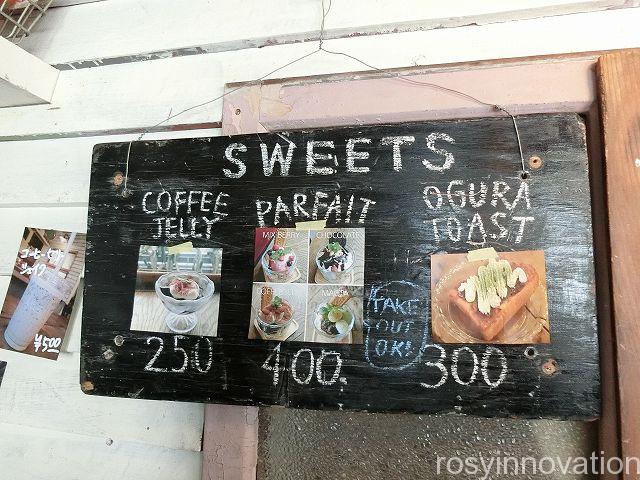 SWEETS
COFFEE
JELLY
250
PARFAIT
MIX BERRY
CHOCOLATE
MATCHA
400
TAKE
OUT
OK!
OGURA
TOAST
300
コーヒーゼリー
シェイク
¥500
rosyinnovation